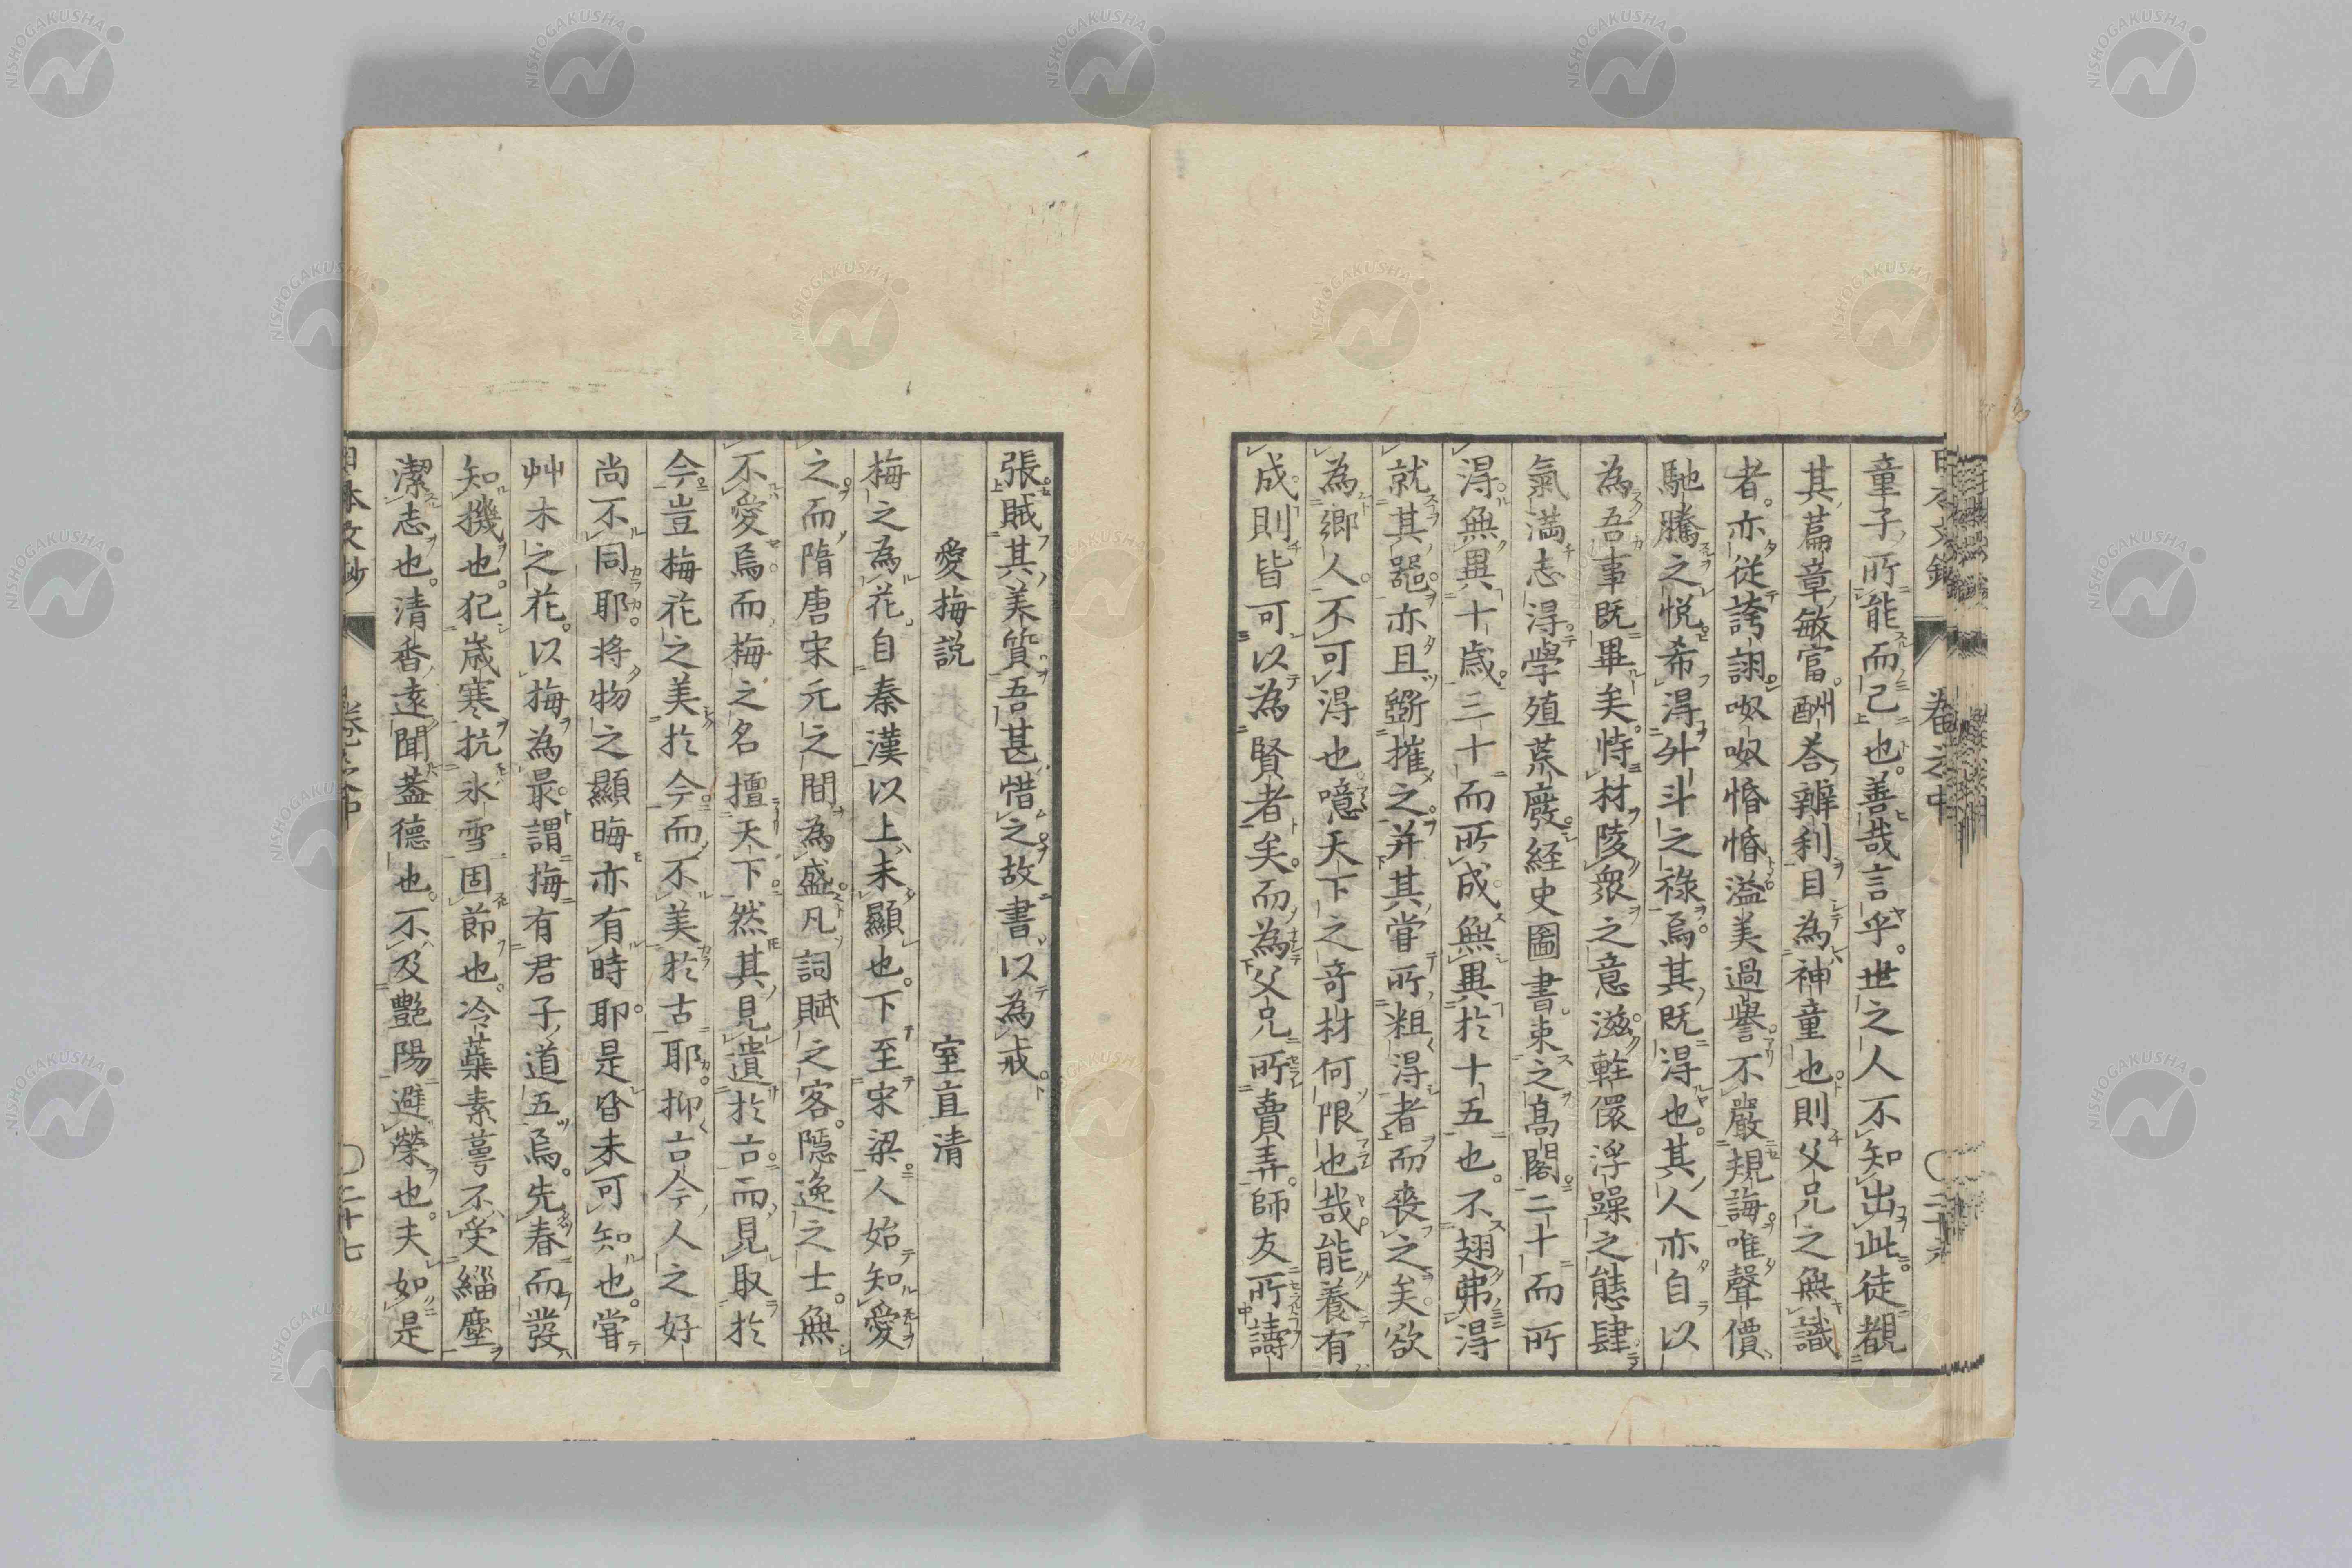 童子所能而已也。善哉言乎。世之人不知出此。徒覩
其篇章敏富。酬荅辨利目為神童也則父兄之無識
者。亦從誇詡呶呶惛惛溢美過譽。不嚴規誨。唯聲價
馳騰之悦希得升斗之祿焉。其既得也。其人亦自以
為吾事既畢矣。恃材陵衆之意滋。輕儇浮躁之態肆
氣滿志得。學殖荒廢。経史圖書。束之髙閣。二十而所
得。無異十歳。三十而所成。無異於十五也。不翅弗得
就其噐。亦且斵摧之。并其甞所粗得者而喪之矣。欲
為郷人。不可得也。噫天下之竒材何限也哉。能養有
成。則皆可以為賢者矣。而為父兄所賣弄。師友所譸
張。賊其美質。吾甚惜之。故書以為戒。
愛梅説
室直清
梅之為花。自秦漢以上。未顯也。下至宋梁。人始知愛
之。而隋唐宋元之間為盛。凡詞賦之客。隱逸之士。無
不愛焉。而梅之名擅天下。然其見遺於古。而見取於
今。豈梅花之美於今。而不美於古耶。抑古今人之好
尚不同耶。将物之顯晦亦有時耶。是皆未可知也。甞
艸木之花。以梅為最。謂梅有君子道五焉。先春而發
知機也。犯歳寒抗氷雪固節也。冷蘂素萼不受緇塵
潔志也。清香遠聞葢德也。不及艷陽避榮也。夫如是
日本文鈔
卷之中
二十七